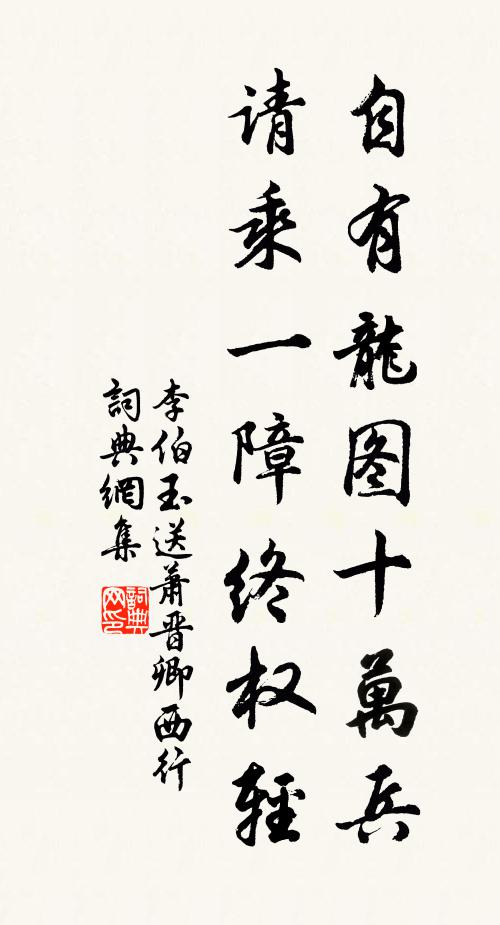 自有龍图十萬兵
请乘一障终权輕
李伯玉送萧晋卿西行
詞典網集
詞典
网印